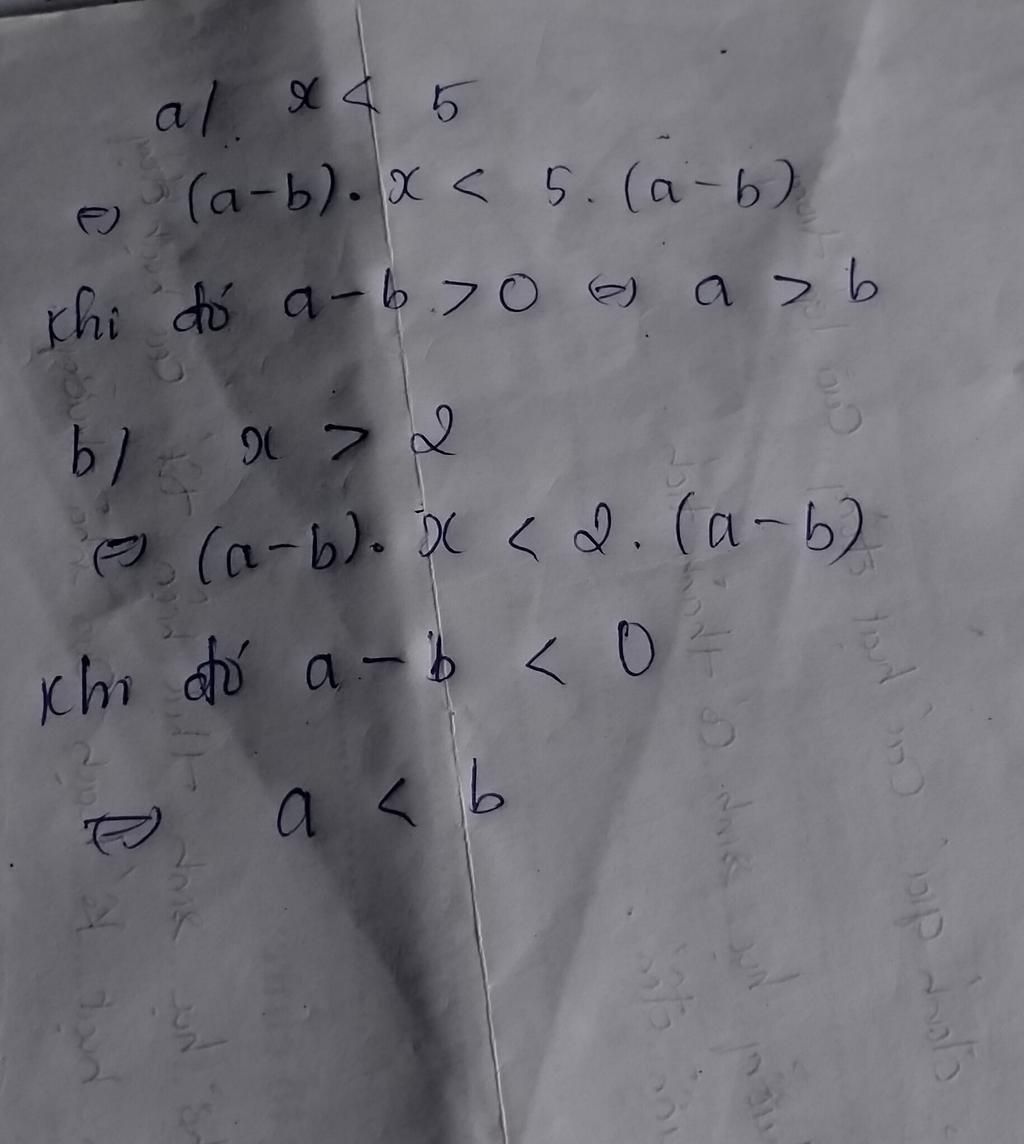 a/. x < 5
⇔ (a-b). x < 5. (a-b)
Khi đó a-b > 0 ⇔ a > b
b/ x > 2
⇔ (a-b). x < 2. (a-b)
Khi đó a-b < 0
⇔ a < b